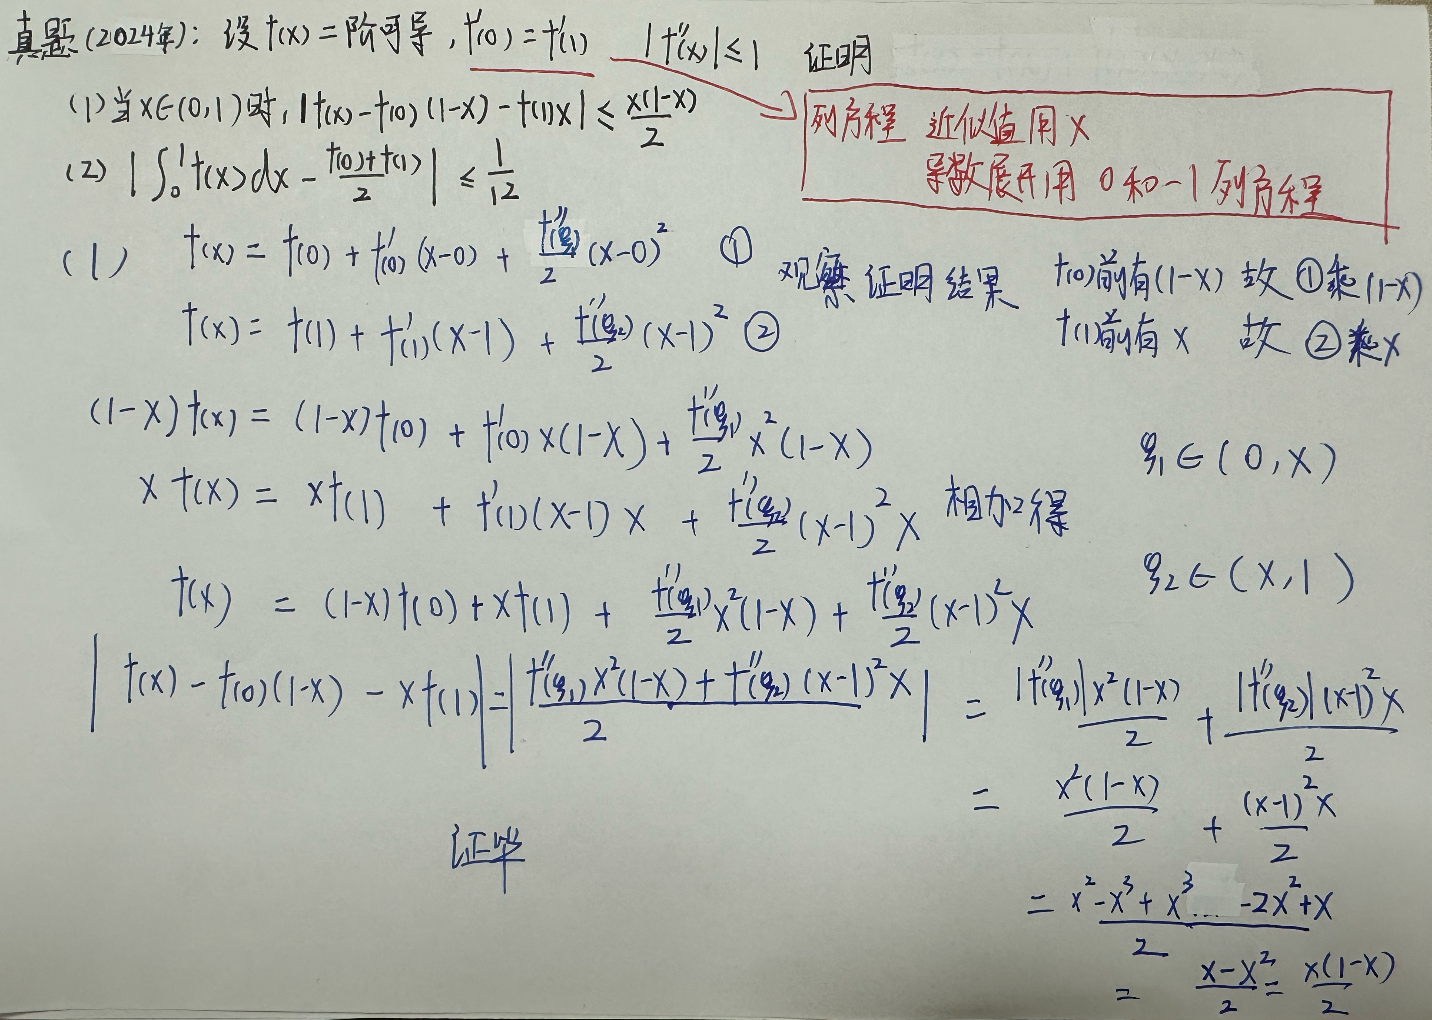 真题(2024年): 设f(x)二阶可导, f'(0)=f'(1) |f''(x)|≤1 证明
(1) 当x∈(0,1)时, |f(x)-f(0)(1-x)-f(1)x| ≤ x(1-x)/2
(2) |∫₀¹f(x)dx - (f(0)+f(1))/2| ≤ 1/12
列方程 近似值用x
导数展开用 0和-1列方程
(1) f(x) = f(0) + f'(0)(x-0) + f''(ξ₁)/2 (x-0)² ①
f(x) = f(1) + f'(1)(x-1) + f''(ξ₂)/2 (x-1)² ②
观察证明结果 f(0)前有(1-x) 故 ①乘(1-x)
f(1)前有x 故 ②乘x
(1-x)f(x) = (1-x)f(0) + f'(0)x(1-x) + f''(ξ₁)/2 x²(1-x)
ξ₁∈(0,x)
xf(x) = xf(1) + f'(1)(x-1)x + f''(ξ₂)/2 (x-1)²x 相加得
ξ₂∈(x,1)
f(x) = (1-x)f(0) + xf(1) + f''(ξ₁)/2 x²(1-x) + f''(ξ₂)/2 (x-1)²x
|f(x)-f(0)(1-x)-xf(1)| = |(f''(ξ₁)x²(1-x) + f''(ξ₂)(x-1)²x)/2| = |f''(ξ₁)|x²(1-x)/2 + |f''(ξ₂)|(x-1)²x/2
= x²(1-x)/2 + (x-1)²x/2
证毕
= (x²-x³+x³ -2x²+x)/2
= (x-x²)/2 = x(1-x)/2